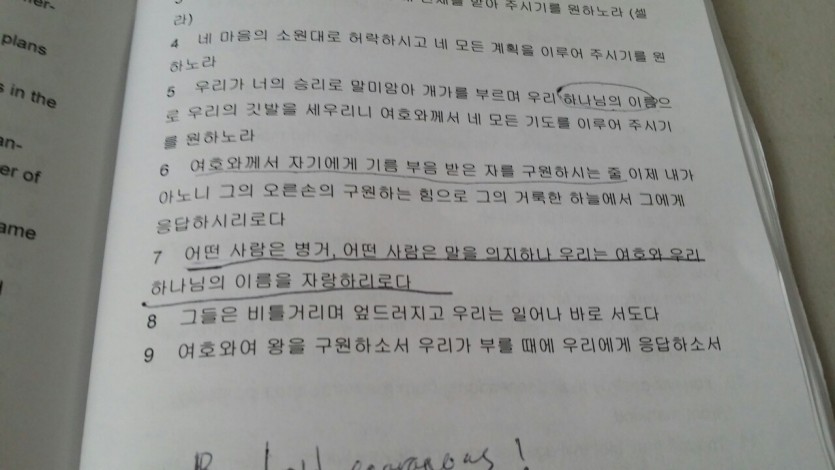 plans
s in the
er of
ame
받아 주시기를 원하노라 (셀
라)
4 네 마음의 소원대로 허락하시고 네 모든 계획을 이루어 주시기를 원
하노라
5 우리가 너의 승리로 말미암아 개가를 부르며 우리 하나님의 이름으
로 우리의 깃발을 세우리니 여호와께서 네 모든 기도를 이루어 주시기
를 원하노라
6 여호와께서 자기에게 기름 부음 받은 자를 구원하시는 줄 이제 내가
아노니 그의 오른손의 구원하는 힘으로 그의 거룩한 하늘에서 그에게
응답하시리로다
7 어떤 사람은 병거, 어떤 사람은 말을 의지하나 우리는 여호와 우리
하나님의 이름을 자랑하리로다
8 그들은 비틀거리며 엎드러지고 우리는 일어나 바로 서도다
9 여호와여 왕을 구원하소서 우리가 부를 때에 우리에게 응답하소서